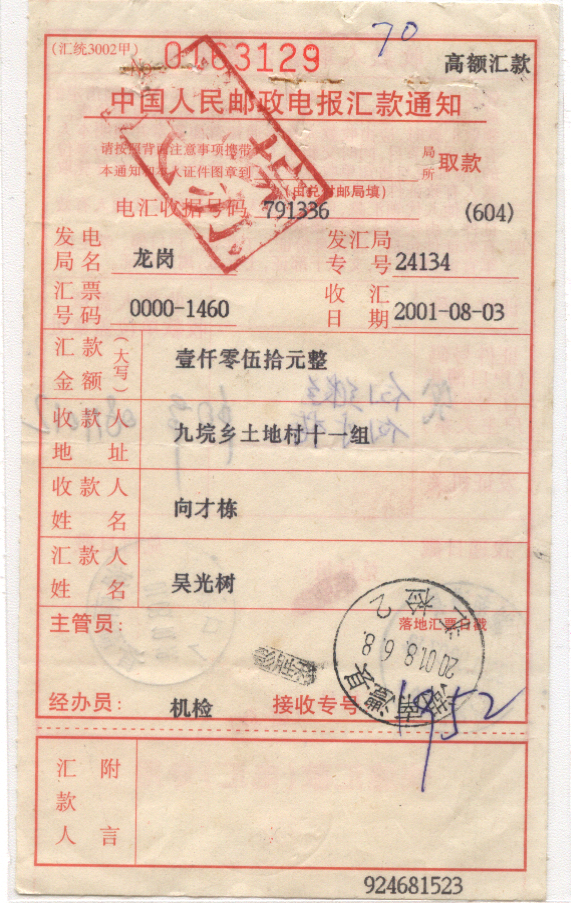 70
(汇统3002甲)
0163129
高额汇款
中国人民邮政电报汇款通知
请按照背面注意事项携带
本通知和本人证件图章到
局所
取款
(由兑付邮局填)
电汇收据号码 791336 (604)
发电局名 龙岗 发汇局专号 24134
汇票号码 0000-1460 收汇日期 2001-08-03
汇款金额(大写) 壹仟零伍拾元整
收款人地址 九垸乡土地村十一组
收款人姓名 向才栋
汇款人姓名 吴光树
主管员:
落地汇票日戳
检2
2001.8.6.8
湖南澧县
经办员: 机检 接收专号
1952
汇款人附言
924681523